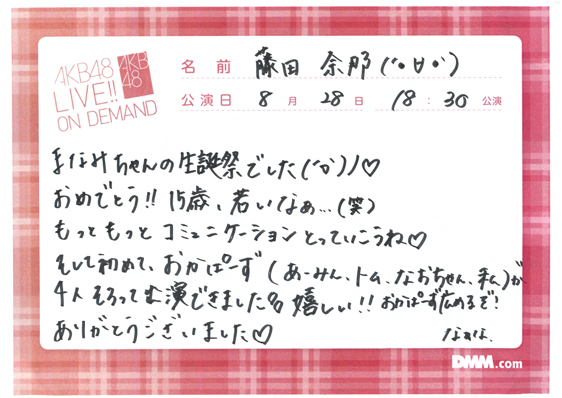 AKB48
LIVE!!
ON DEMAND
AKB
48
名前 藤田 奈那(´・日・`)
公演日 8月 28日 18:30 公演
まなみちゃんの生誕祭でした(´か)ノ♡
おめでとう!! 15歳、若いなぁ…(笑)
もっともっと コミュニケーションとっていこうね♡
そして初めて、おかぱーず(あーみん、トム、なおちゃん、私)が
4人そろって出演できました 嬉しい!! おかぱーず広めるぞ!
ありがとうございました♡
なぁな、
DMM.com